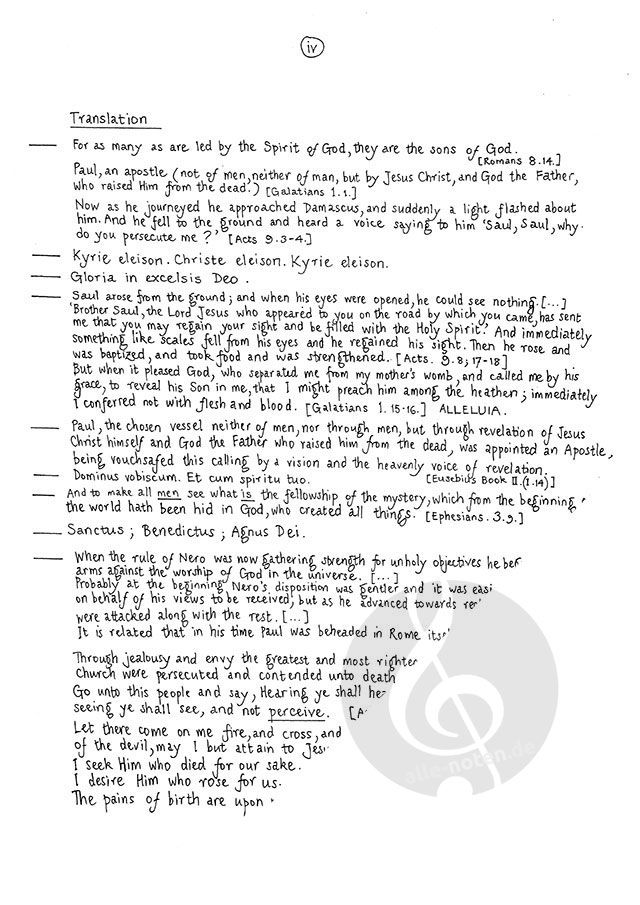 iv
Translation
For as many as are led by the Spirit of God, they are the sons of God.
[Romans 8.14.]
Paul, an apostle (not of men, neither of man, but by Jesus Christ, and God the Father,
who raised Him from the dead.) [Galatians 1.1.]
Now as he journeyed he approached Damascus, and suddenly a light flashed about
him. And he fell to the ground and heard a voice saying to him 'Saul, Saul, why
do you persecute me?' [Acts 9.3-4.]
Kyrie eleison. Christe eleison. Kyrie eleison.
Gloria in excelsis Deo.
Saul arose from the ground; and when his eyes were opened, he could see nothing. [...]
'Brother Saul, the Lord Jesus who appeared to you on the road by which you came, has sent
me that you may regain your sight and be filled with the Holy Spirit.' And immediately
something like scales fell from his eyes and he regained his sight. Then he rose and
was baptized, and took food and was strengthened. [Acts 9.8; 17-18]
But when it pleased God, who separated me from my mother's womb, and called me by his
grace, to reveal his Son in me, that I might preach him among the heathen; immediately
I conferred not with flesh and blood. [Galatians 1. 15-16.] ALLELUIA.
Paul, the chosen vessel neither of men, nor through men, but through revelation of Jesus
Christ himself and God the Father who raised him from the dead, was appointed an Apostle,
being vouchsafed this calling by a vision and the heavenly voice of revelation.
[Eusebius Book II.(1.14)]
Dominus vobiscum. Et cum spiritu tuo.
And to make all men see what is the fellowship of the mystery, which from the beginning
the world hath been hid in God, who created all things. [Ephesians. 3.9.]
Sanctus; Benedictus; Agnus Dei.
When the rule of Nero was now gathering strength for unholy objectives he
arms against the worship of God in the universe. [...]
Probably at the beginning Nero's disposition was gentler and it was
on behalf of his views to be received, but as he advanced towards
were attacked along with the rest. [...]
It is related that in his time Paul was beheaded in Rome
Through jealousy and envy the greatest and most
Church were persecuted and contended unto death
Go unto this people and say, Hearing ye shall
seeing ye shall see, and not perceive.
Let there come on me fire, and cross, and
of the devil, may I but attain to
I seek Him who died for our sake.
I desire Him who rose for us.
The pains of birth are upon
alle-noten.de